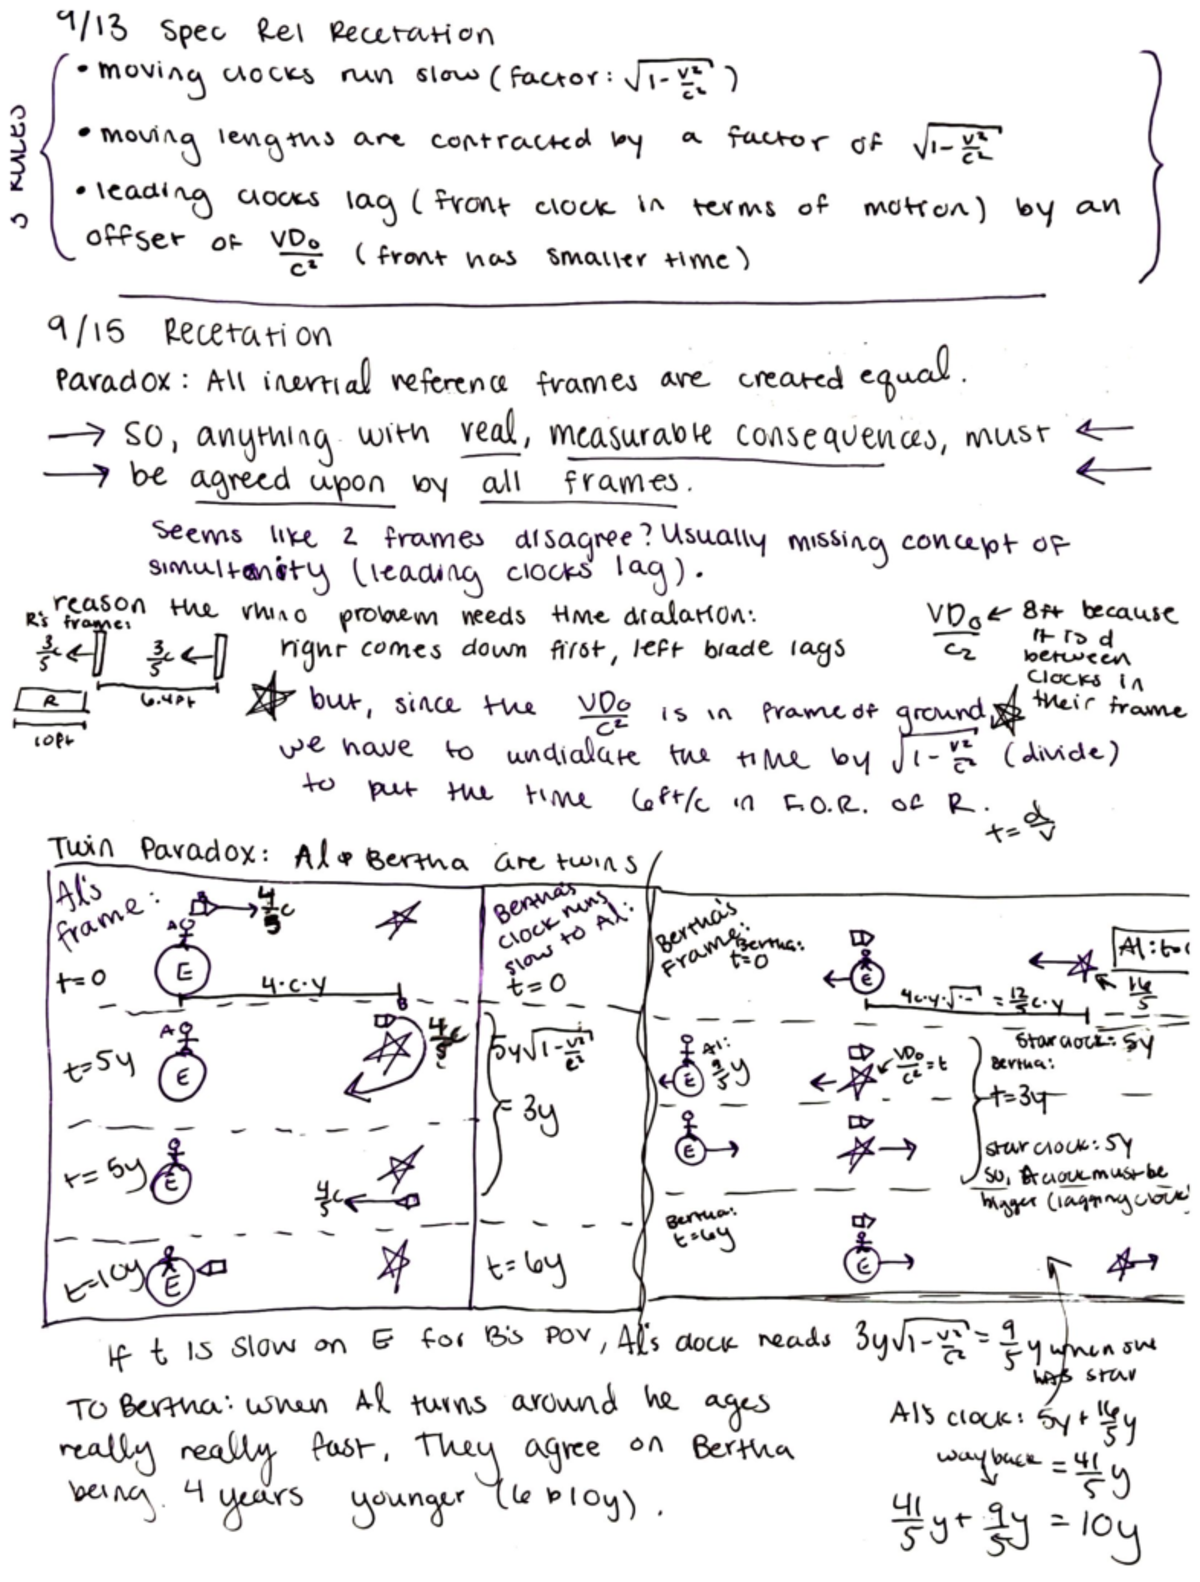 9/13 Spec Rel Recetation
3 RULES
• moving clocks run slow (factor: √1-v²/c²)
• moving lengths are contracted by a factor of √1-v²/c²
• leading clocks lag (front clock in terms of motion) by an
offset of VD₀/c² (front has smaller time)
9/15 Recetation
Paradox: All inertial reference frames are created equal.
→ so, anything with real, measurable consequences, must ←
→ be agreed upon by all frames. ←
Seems like 2 frames disagree? Usually missing concept of
simultanity (leading clocks lag).
reason the rhino problem needs time dialation:
R's frame:
3/5c ← 3/5c ←
R
6.4ft
10ft
right comes down first, left blade lags
VD₀/c² ← 8ft because
it is d
between
clocks in
their frame
☆ but, since the VD₀/c² is in frame of ground, ☆
we have to undialate the time by √1-v²/c² (divide)
to put the time left/c in F.O.R. of R.
t=d/v
Twin Paradox: Al & Bertha are twins
Al's
frame:
B → 4/5c
A
E
t=0
4·c·y
B
Bertha's
clock runs
slow to Al:
t=0
t=5y
A
E
4/5c
5y√1-v²/c²
= 3y
t=5y
E
4/5c ←
t=10y
E
t=6y
Bertha's
Frame:
Bertha:
t=0
E
Al: t=
16/5
4c·y·√1-- = 12/5 c·y
star clock: 5y
Al:
9/5y
E
VD₀/c²=t
Bertha:
t=3y
E
star clock: 5y
so, A clock must be
bigger (lagging clock)
Bertha:
t=6y
E
If t is slow on E for B's POV, Al's clock reads 3y√1-v²/c² = 9/5y when she
has star
To Bertha: when Al turns around he ages
really really fast. They agree on Bertha
being 4 years younger (6 10y).
Al's clock: 5y + 16/5y
way back = 41/5y
41/5y + 9/5y = 10y